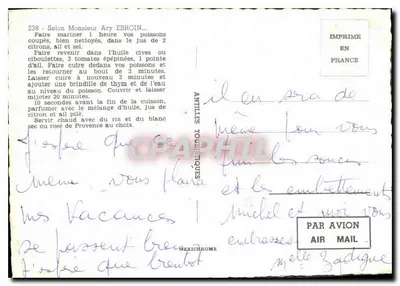 238 - Selon Monsieur Ary EBROIN...
Faire mariner 1 heure vos poissons
coupés, bien nettoyés, dans le jus de 2
citrons, ail et sel.
Faire revenir dans l'huile cives ou
ciboulettes, 2 tomates épépinées, 1 pointe
d'ail. Faire cuire dedans vos poissons et
les retourner au bout de 2 minutes.
Laisser cuire à nouveau 3 minutes et
ajouter une brindille de thym et de l'eau
au niveau du poisson. Couvrir et laisser
mijoter 20 minutes.
10 secondes avant la fin de la cuisson,
parfumer avec le mélange d'huile, jus de
citron et ail pilé.
Servir chaud avec du riz et du blanc
sec ou rosé de Provence au choix.
J'espère que
même vous
mes Vacances
se passent bien
J'espère que bientôt
ANTILLES TOURISTIQUES
MEXICHROME
IMPRIME
EN
FRANCE
il en sera de
même pour vous
les soucis
et les embettements
Michel et moi vous
embrasse
PAR AVION
AIR MAIL
Melle